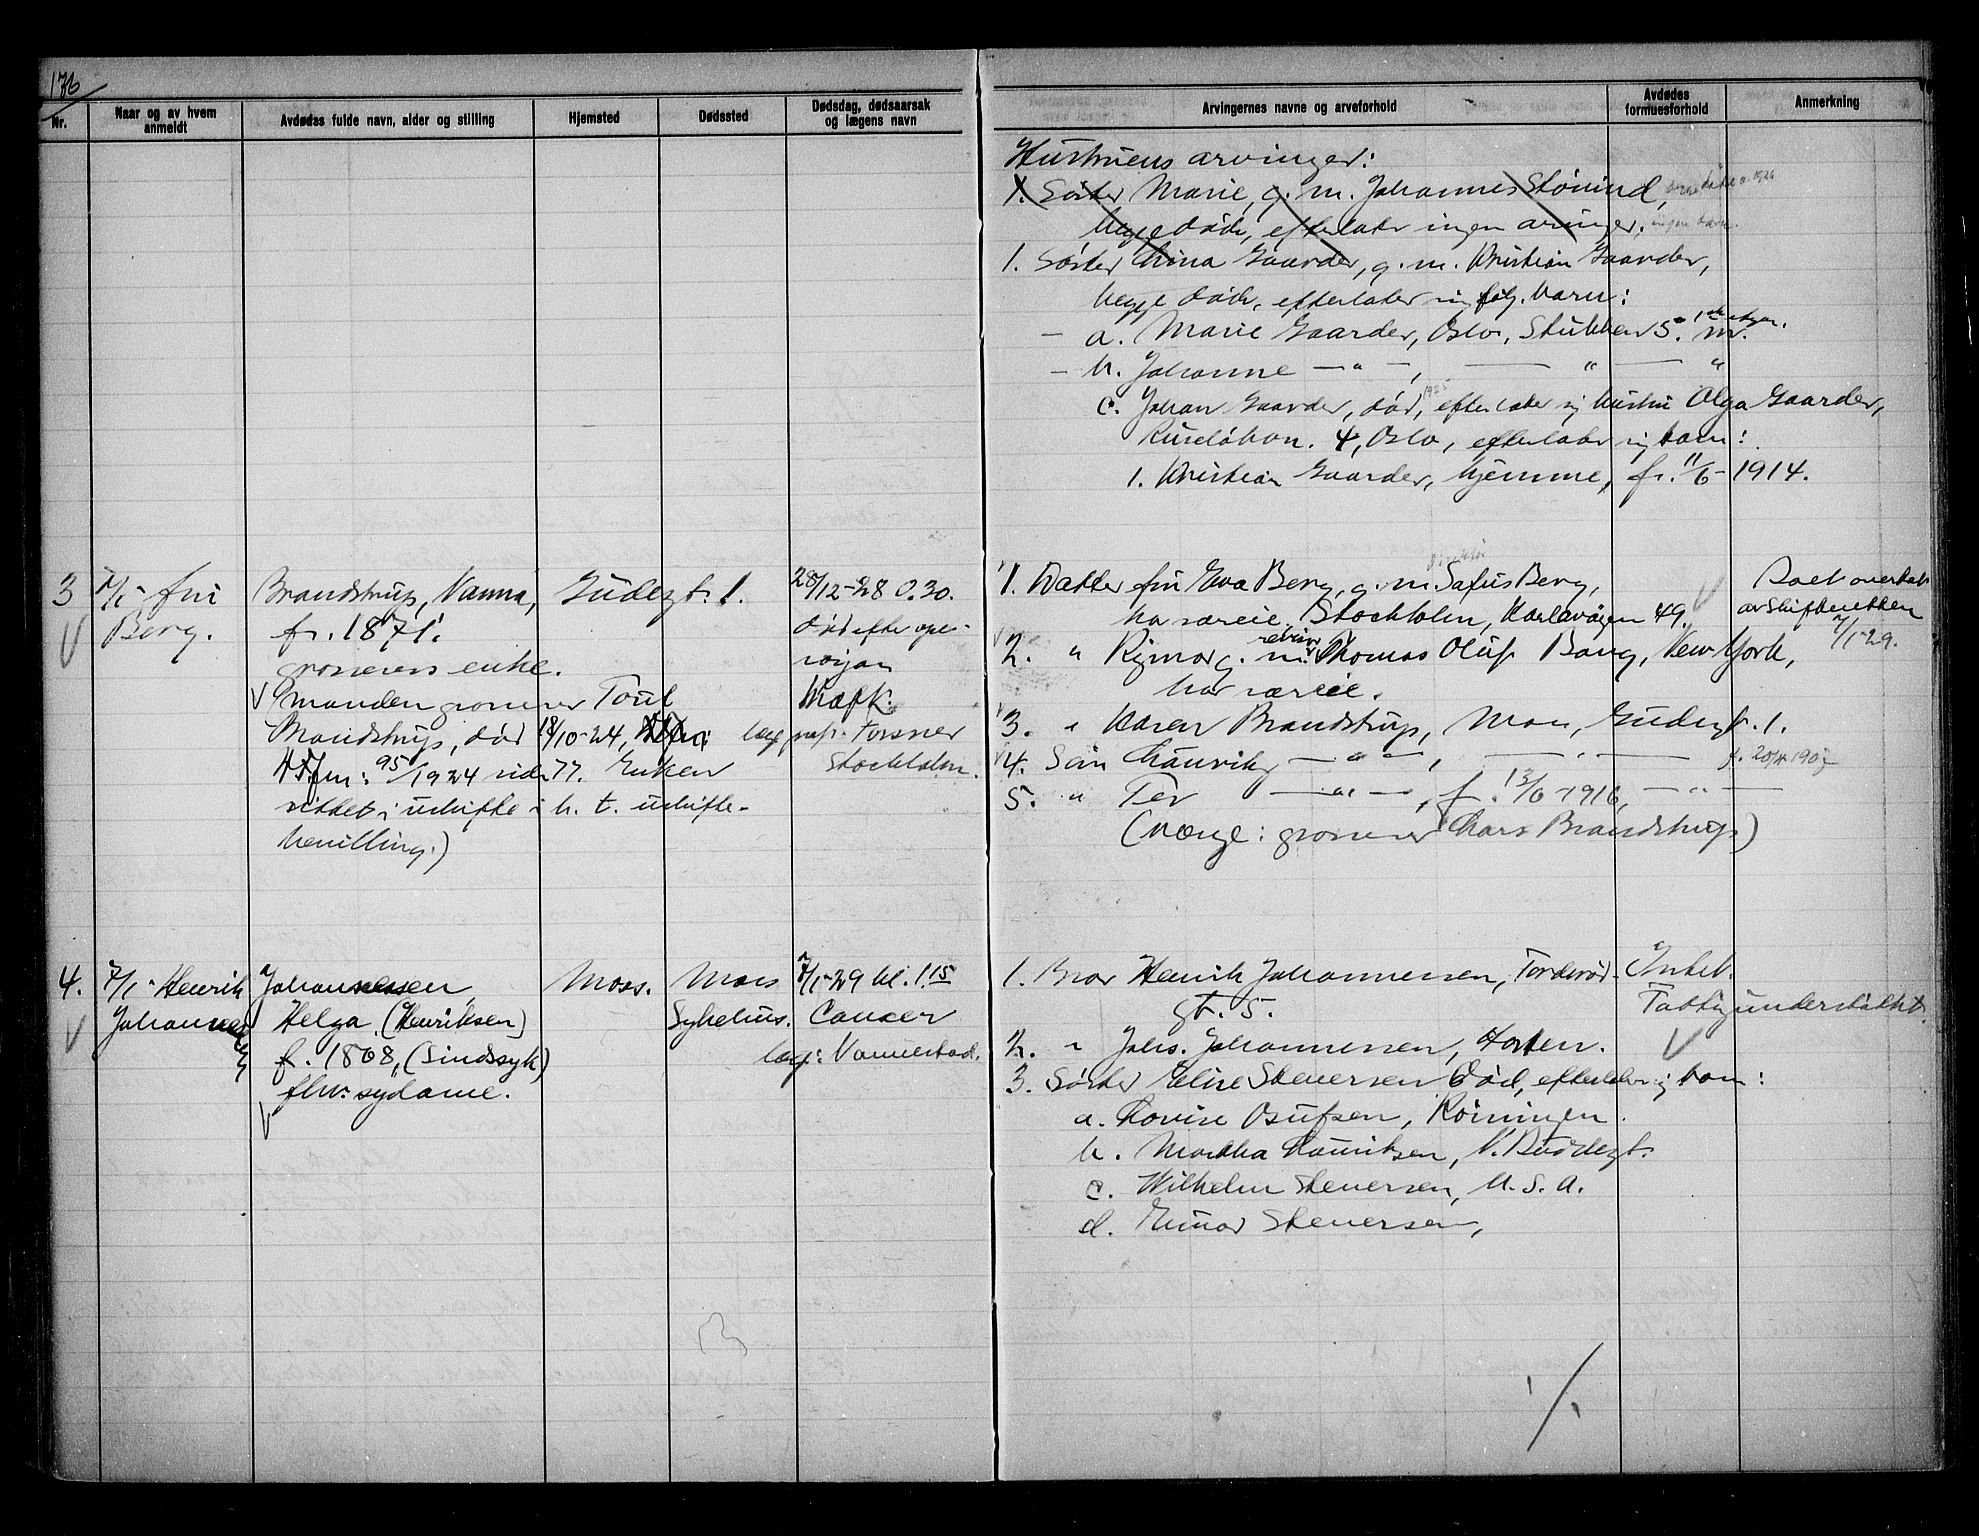 176
Nr.
Naar og av hvem anmeldt
Avdødes fulde navn, alder og stilling
Hjemsted
Dødssted
Dødsdag, dødsaarsak og lægens navn
Arvingernes navne og arveforhold
Avdødes formuesforhold
Anmerkning
Hustruens arvinger:
1. Søster Marie, g. m. Johannes
begge døde, efterlater ingen arvinger.
1. Søster Lina Gaarder, g. m. Kristian Gaarder,
begge døde, efterlater sig følg. barn:
- a. Marie Gaarder, Oslo, Stubben 5.
- b. Johanne — " —, — " — "
c. Johan Gaarder, død, 1925 efterlater sig hustru Olga Gaarder,
4, Oslo, efterlater sig barn:
1. Kristian Gaarder, hjemme, f. 11/6-1914.
3
7/1- fru
Berg.
Brandstrup, Nanna,
f. 1871.
grosserers enke.
Manden grosserer
Brandstrup, død 18/10-24,
95/1924 side 77. Enken
sittet i uskifte i h. t. uskifte-
bevilling.)
Gudesgt. 1.
28/12-28 0.30.
død efter ope-
rasjon
læg prof. Forsner
Stockholm.
1. Datter fru Eva Berg, g. m. Direktør Berg,
har særeie. Stockholm, Karlavägen 49.
2. " g. m. revisor Thomas Oluf Bang, New York,
har særeie.
3. " Karen Brandstrup, Moss, Gudesgt. 1.
4. Søn Lauritz — " —, — " — f. 20/4 190
5. " — " —, f. 13/6-1916, — " —
(Verge: grosserer Lars Brandstrup)
Boet overtat
av skifteretten
7/1-29.
4.
7/1- Henrik
Johannessen
Johannessen,
Helga (Henriksen)
f. 1868, (sindssyk)
fhv. sydame.
Moss.
Moss
Sykehus.
7/1-29 kl. 1.15
Cancer
læg: Vannestad.
1. Bror Henrik Johannessen, Torderød-
gt. 5.
2. " Johs. Johannessen, Horten.
3. Søster Elise Stenersen død, efterlater sig barn:
a. Lovise Osufsen,
b. Martha Lauritsen,
c. Wilhelm Stenersen, U. S. A.
d. Einar Stenersen,
Intet.
Fattigunderstøttet.